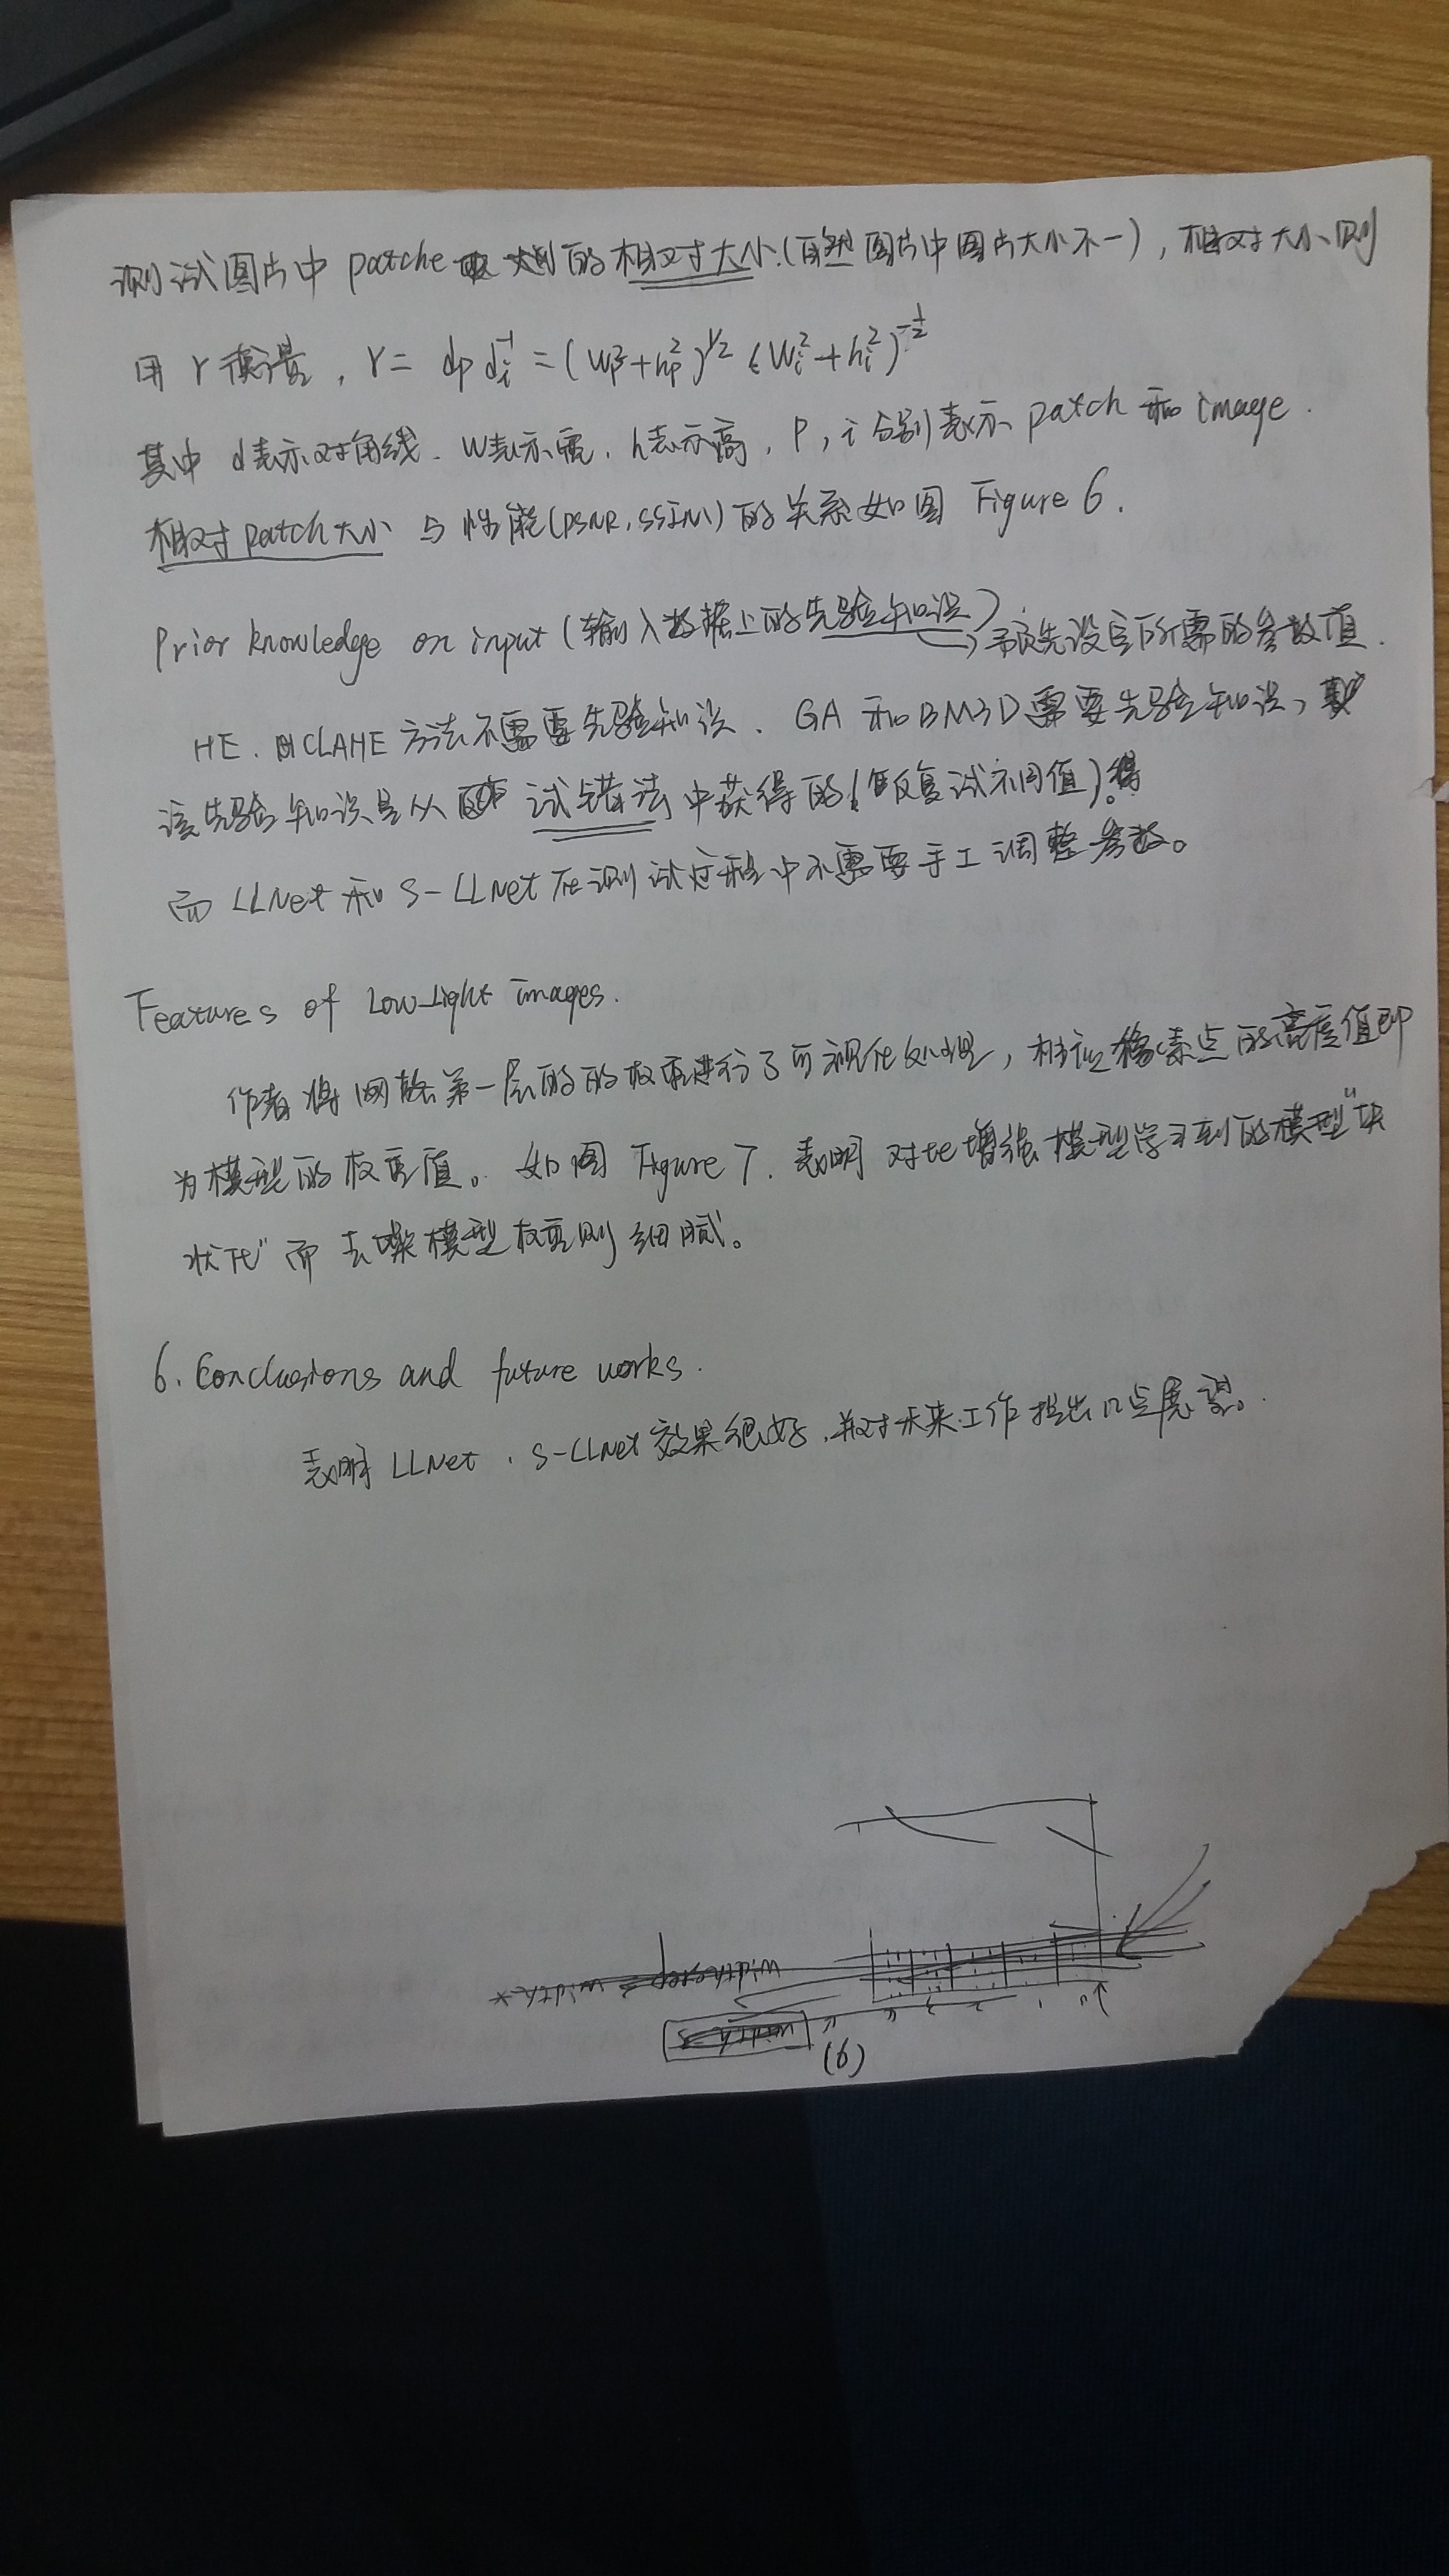 测试图片中 patche 的相对大小(自然图片中图片大小不一), 相对大小则
用 r 衡量, r = dp di^-1 = (wp^2+hp^2)^1/2 (wi^2+hi^2)^-1/2
其中 d表示对角线. w表示宽. h表示高, P, i 分别表示 patch 和 image.
相对 patch 大小 与 性能(PSNR, SSIM) 的关系如图 Figure 6.
Prior knowledge on input (输入数据上的先验知识) → 预先设定所需的参数值.
HE. CLAHE 方法不需要先验知识. GA 和 BM3D 需要先验知识,
该先验知识是从 试错法中获得的(反复试不同值)。
而 LLNet 和 S-LLNet 在测试过程中不需要手工调整参数。
Features of Low-light images.
作者将网络第一层的的权重进行了可视化处理, 相应像素点的亮度值即
为模型的权重值。如图 Figure 7. 表明 对比增强模型学习到的模型"块
状化" 而 去噪模型权重则 细腻。
6. Conclusions and future works.
表明 LLNet. S-LLNet 效果很好, 并对未来工作提出几点展望。
(6)